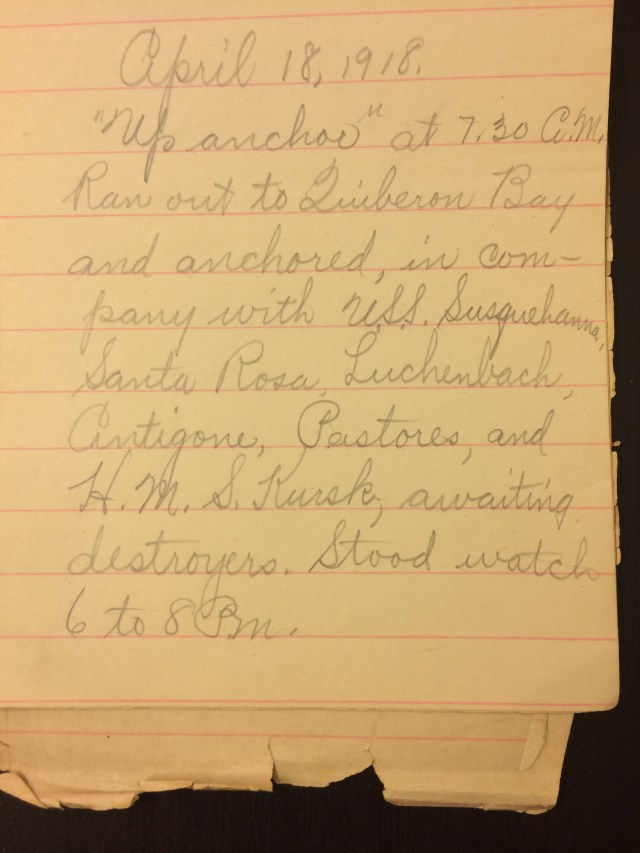 April 18, 1918.
"Up anchor" at 7.30 A.M.
Ran out to Quiberon Bay
and anchored, in com-
pany with U.S.S. Susquehanna,
Santa Rosa, Luchenbach,
Antigone, Pastores, and
H.M.S. Kursk, awaiting
destroyers. Stood watch
6 to 8 P.m.